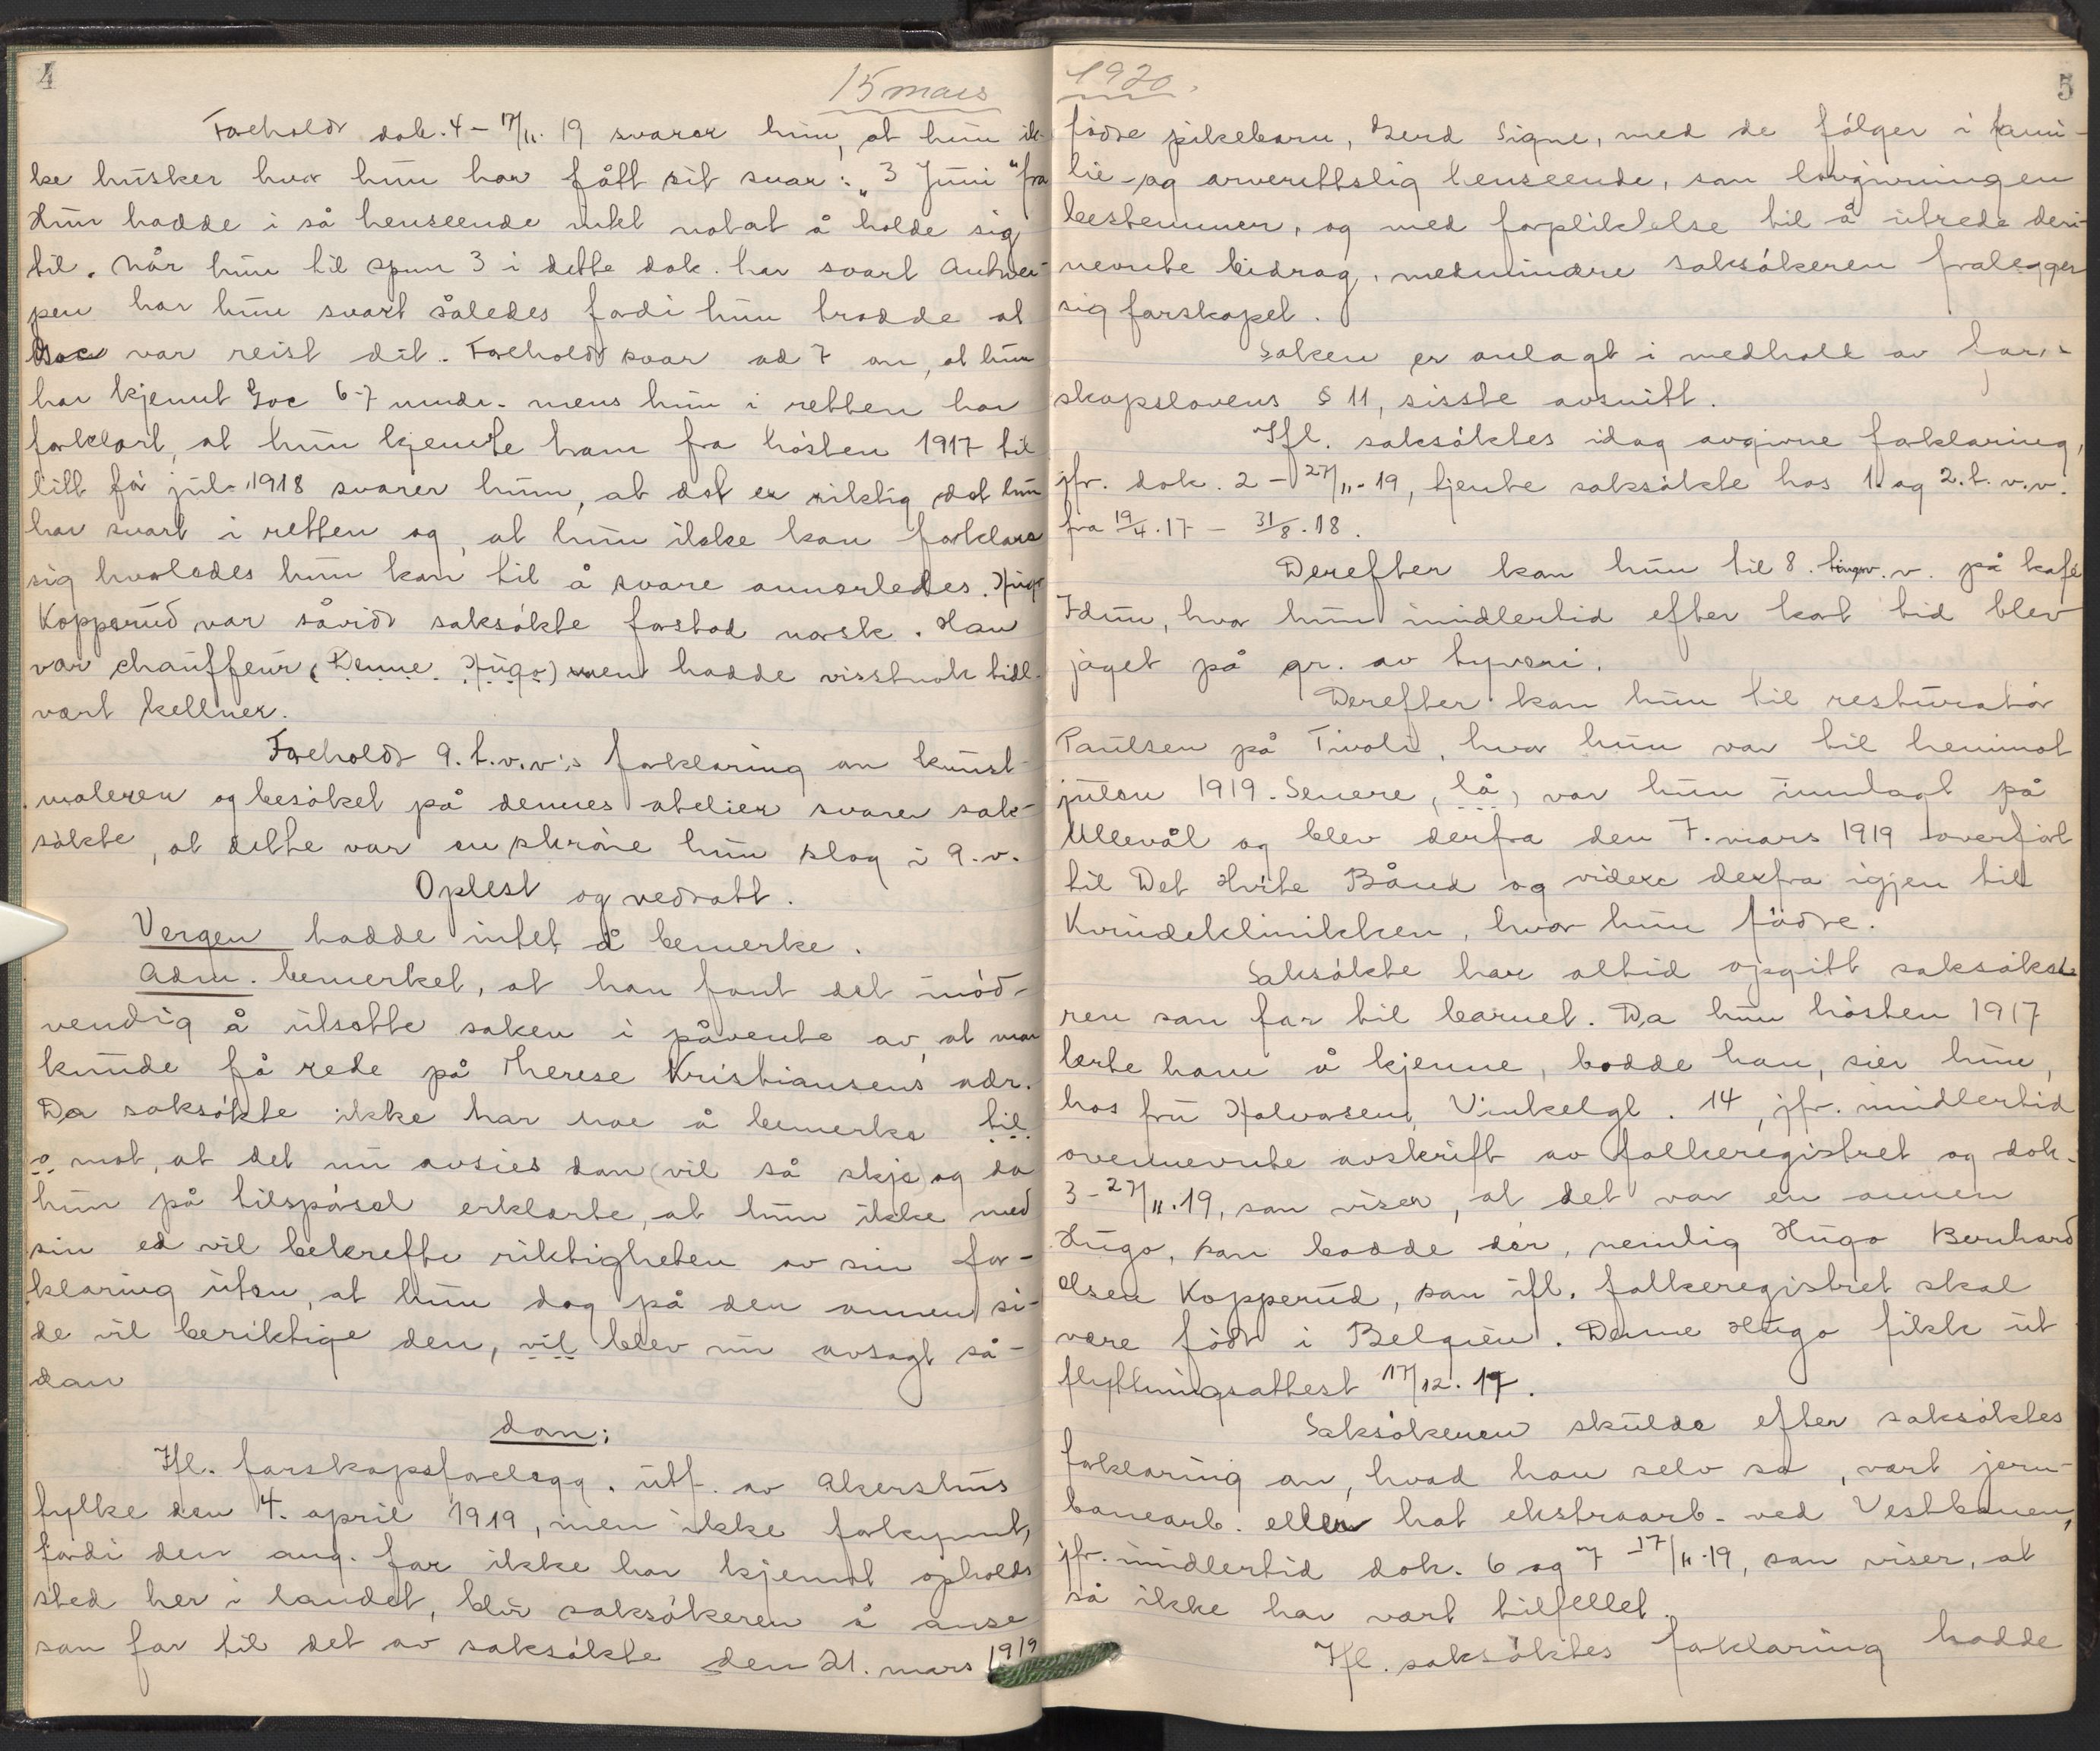 4
15 mars
Foreholdt dok. 4 - 17/11. 19 svarer hun, at hun ik-
ke husker hvor hun har fått sit svar: "3 Juni" fra
Hun hadde i så henseende intet notat å holde sig
til. Når hun til spm 3 i dette dok. har svart Antwer-
pen har hun svart således fordi hun trodde at
Goe var reist dit. Foreholdt svar ad 7 om, at hun
har kjennt Goe 6-7 mndr. mens hun i retten har
forklart, at hun kjennte ham fra høsten 1917 til
litt før jul 1918 svarer hun, at det er riktig det hun
har svart i retten og, at hun ikke kan forklare
sig hvorledes hun kan til å svare annerledes. Hugo
Kopperud var såvidt saksøkte forstod norsk. Han
var chauffeur (Denne Hugo) men hadde visstnok tidl.
vært kellner.
Foreholdt 9. t.v.v's forklaring om kunst-
maleren og besøket på dennes atelier svarer sak-
søkte, at dette var en skrøne hun slog i 9. v.
Oplest og vedtatt.
Vergen hadde intet å bemerke.
Adm. bemerket, at han fant det unød-
vendig å utsette saken i påvente av, at man
kunde få rede på Therese Kristiansens adr.
Da saksøkte ikke har noe å bemerke til
o mot, at det nu avsies dom (vil så skje) og da
hun på tilspørsel erklærte, at hun ikke med
sin ed vil bekrefte riktigheten av sin for-
klaring uten, at hun dog på den annen si-
de vil beriktige den, vil blev nu avsagt så-
dan
dom:
Ifl. farskapsforelegg. utf. av Akershus
fylke den 4. april 1919, men ikke forkynnt,
fordi den ang. far ikke har kjennt opholds
sted her i landet, blir saksøkeren å anse
som far til det av saksøkte den 21. mars 1919
1920.
5
fødte pikebarn, Gerd Signe, med de følger i fami-
lie- og arverettslig henseende, som lovgivningen
bestemmer, og med forpliktelse til å utrede den-
nevnte bidrag, medmindre saksøkeren fralegger
sig farskapet.
Saken er anlagt i medhold av far-
skapslovens § 11, sisste avsnitt.
Ifl. saksøktes idag avgivne forklaring,
jfr. dok. 2 - 27/11-19, tjente saksøkte hos 1. og 2. t. v.v.
fra 19/4.17 - 31/8.18.
Derefter kom hun til 8. tingv. v. på kafé
Idun, hvor hun imidlertid efter kort tid blev
jaget på gr. av tyveri.
Derefter kom hun til restauratør
Paulsen på Tivoli, hvor hun var til henimot
julen 1919. Senere, lå, var hun innlagt på
Ullevål og blev derfra den 7. mars 1919 overført
til Det Hvite Bånd og videre derfra igjen til
Kvindeklinikken, hvor hun fødte.
Saksøkte har altid opgitt saksøke-
ren som far til barnet. Da hun høsten 1917
lærte ham å kjenne, bodde han, sier hun,
hos fru Halvorsen, Vinkelgt. 14, jfr. imidlertid
ovennevnte avskrift av folkeregistret og dok.
3 - 27/11.19, som viser, at det var en annen
Hugo, som bodde dér, nemlig Hugo Bernhard
Olsen Kopperud, som ifl. folkeregistret skal
være født i Belgien. Denne Hugo fikk ut
flyttningsattest 17/12. 17.
Saksøkeren skulde efter saksøktes
forklaring om, hvad han selv sa, vært jern-
banearb. eller hat ekstraarb. ved Vestbanen,
jfr. imidlertid dok. 6 og 7 - 17/11.19, som viser, at
så ikke har vært tilfellet.
Ifl. saksøktes forklaring hadde